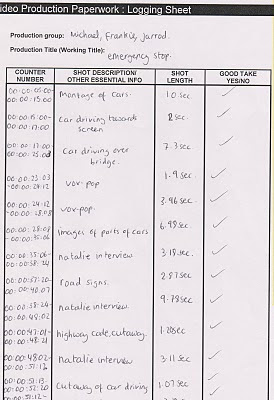 ideo Production Paperwork : Logging Sheet
Production group: Michael, Frankie, Jarrod.
Production Title (Working Title):
emergency stop.
COUNTER NUMBER SHOT DESCRIPTION/ OTHER ESSENTIAL INFO SHOT LENGTH GOOD TAKE YES/NO
00:00:05:00-
00:00:15:00 Montage of cars. 10 sec
00:00:15:00-
00:00:17:00 car driving towards screen 2 sec.
00:00:17:00
Car driving over bridge. 7.3 sec
00:00:23:03
-00:00:24:12 vox-pop 1.9 sec
00:00:24:12
vox-pop. 3.96 sec
00:00:28:08
-00:00:35:06 images of parts of cars 6.98 sec.
00:00:35:06-
natalie interview 3.18 sec.
road signs. 2.87 sec
natalie interview. 9.78 sec
00:00:47:01-
00:00:48:21 highway code, cutaway.
natalie interview 3.11 sec
cutaway of car driving 1.07 sec